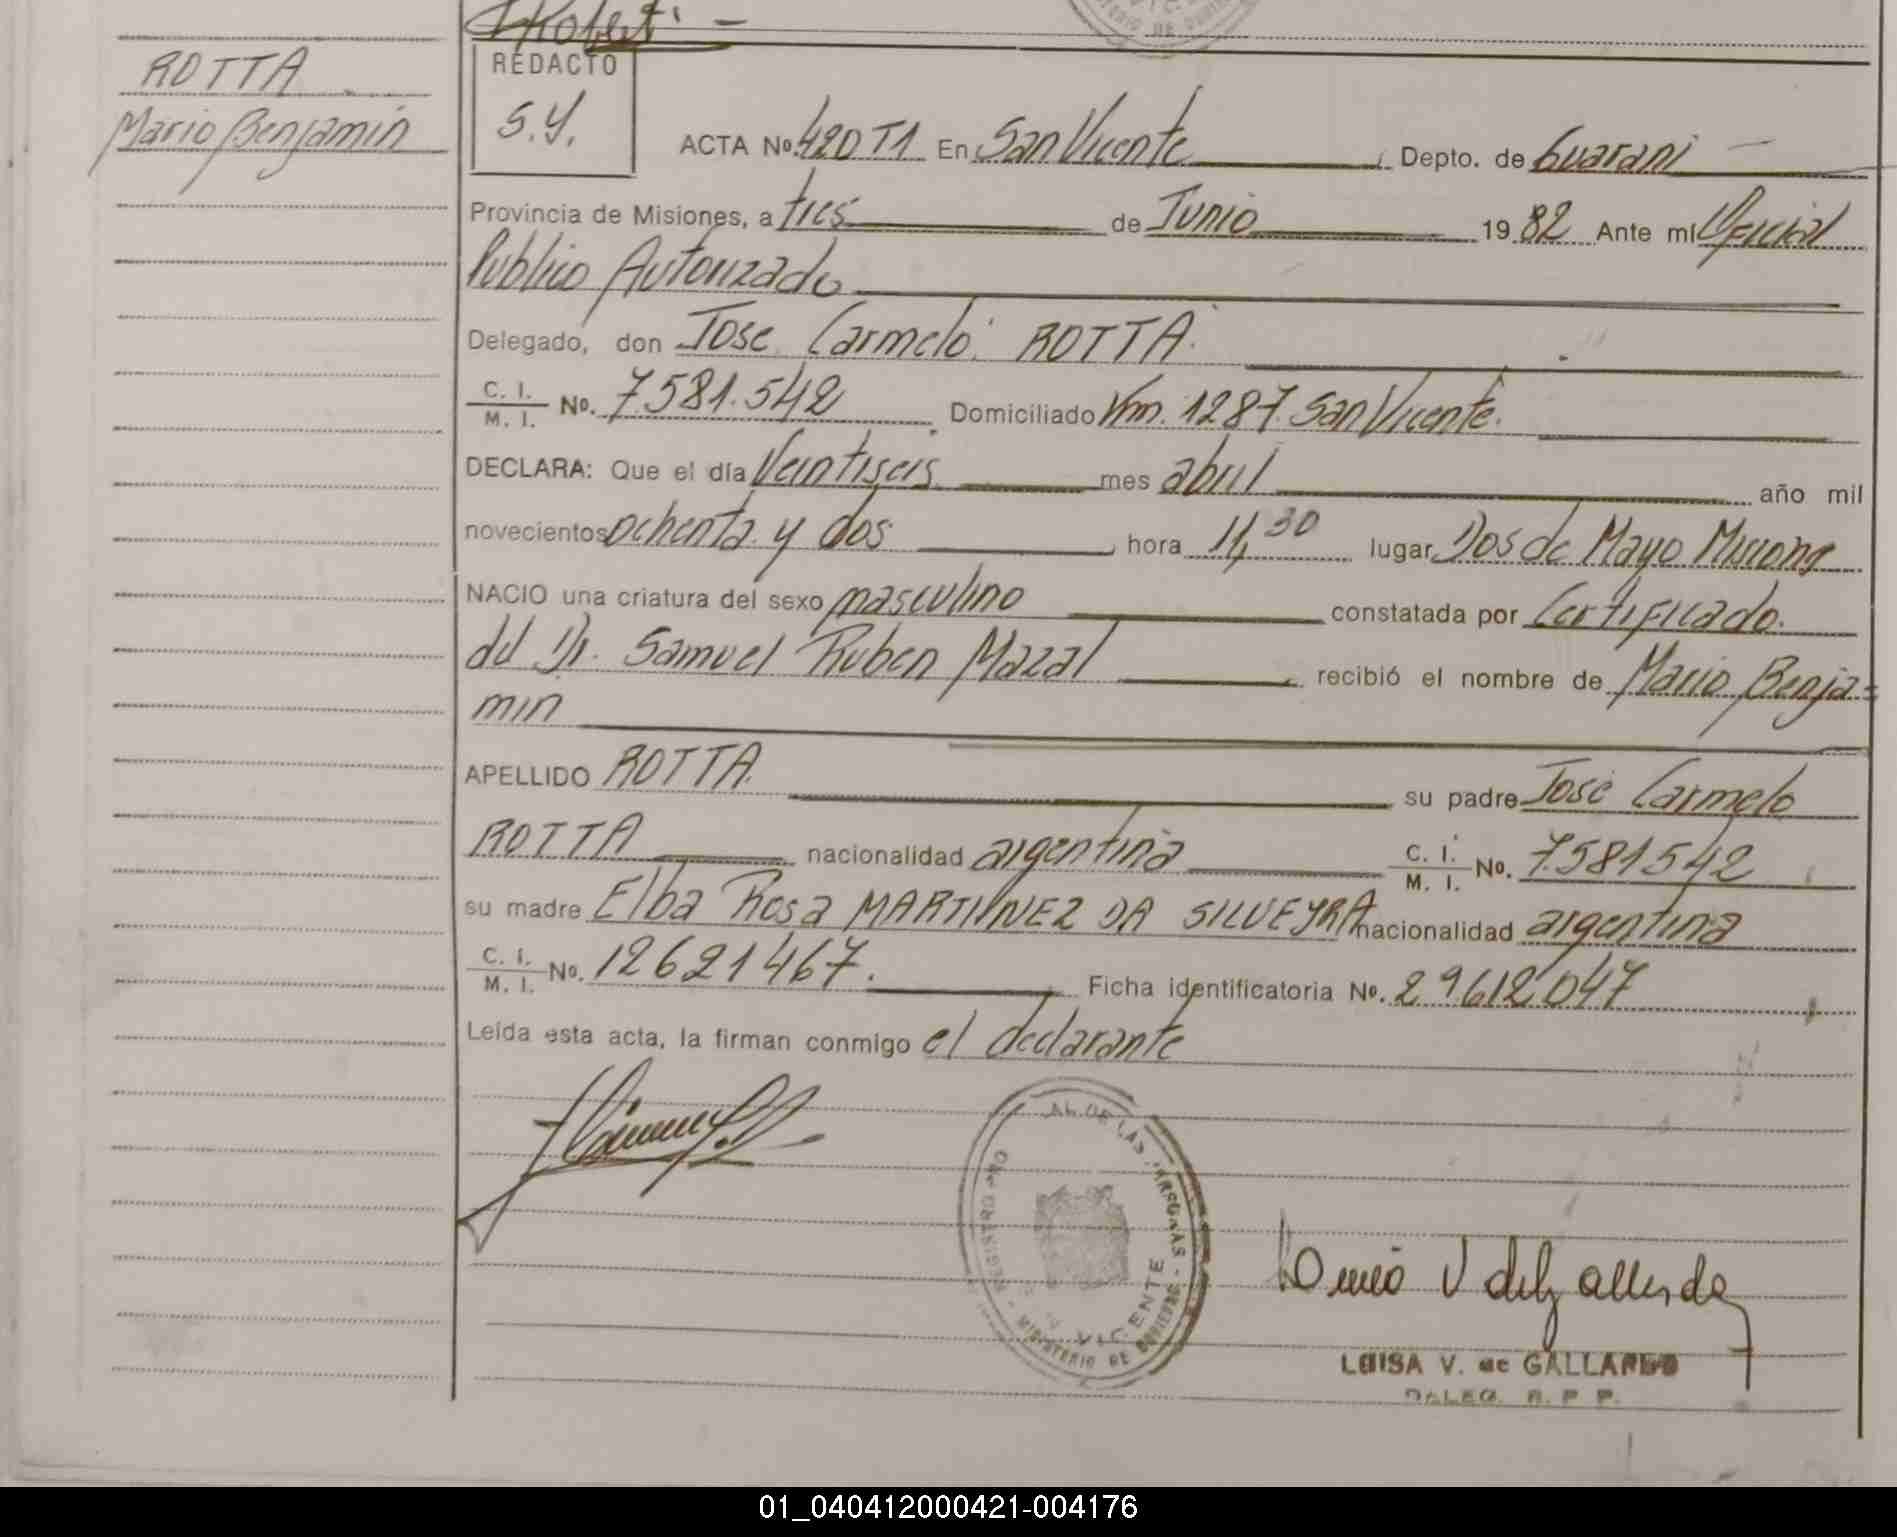 ROTTA
Mario Benjamin
REDACTO
S.Y.
ACTA Nº. 420 T1 En San Vicente Depto. de Guarani
Provincia de Misiones, a tres de Junio 19 82 Ante mí Oficial
Publico Autorizado
Delegado, don Jose Carmelo ROTTA
C. I. / M. I. Nº. 7581.542 Domiciliado Km. 1287 San Vicente.
DECLARA: Que el día Veintiseis mes abril año mil
novecientos ochenta y dos hora 11,30 lugar Dos de Mayo Misiones
NACIO una criatura del sexo masculino constatada por Certificado.
del Dr. Samuel Ruben Mazal recibió el nombre de Mario Benja=
min
APELLIDO ROTTA su padre José Carmelo
ROTTA nacionalidad argentina C. I. / M. I. Nº. 7581542
su madre Elba Rosa MARTINEZ DA SILVEYRA nacionalidad argentina
C. I. / M. I. Nº. 12621467. Ficha identificatoria Nº. 29612047
Leída esta acta, la firman conmigo el declarante
AL DE LAS PERSONAS - MINISTERIO DE GOBIERNO
VICENTE
LUISA V. de GALLARDO
DALEG. R. P. P.
01_040412000421-004176